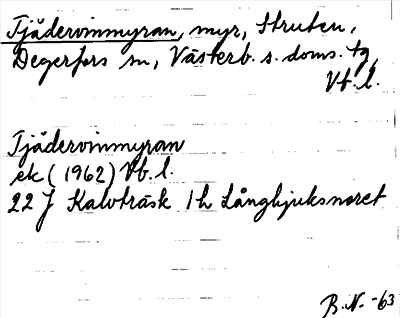 Tjädervinmyran, myr, Strutsn,
Degerfors sn, Västerb. s. doms. tg,
Vb. l.
Tjädervinmyran
ek (1962) Vb. l.
22 J Kalvträsk 1h Långhjuksnoret
B.N. -63